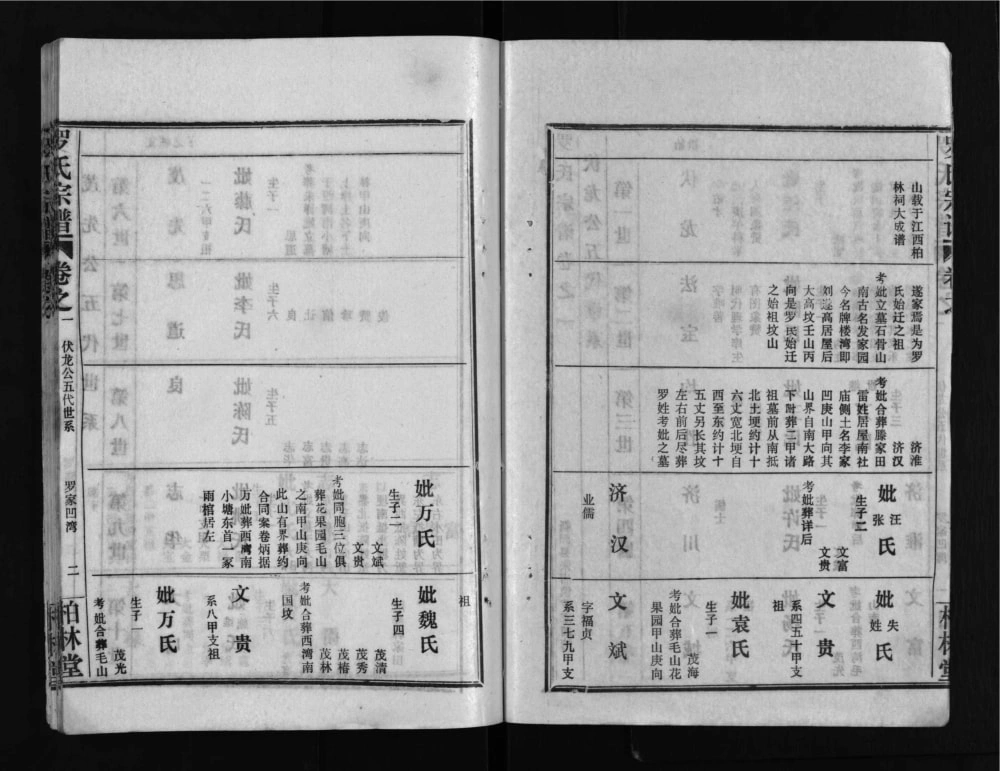 山载于江西柏
林祠大成谱
遂家焉是为罗
氏始迁之祖
考妣立墓石骨山
南古名发家园
今名牌楼湾即
刘遂高居屋后
大高坟壬山丙
向是罗氏始迁
之始祖坟山
济淮
济汉
考妣合葬滕家田
雷姓居屋南社
庙侧土名李家
凹庚山甲向其
山界自南大路
下附葬二甲诸
祖墓前从南抵
北土埂约计十
六丈宽北埂自
西至东约计十
五丈另长其坟
左右前后尽葬
罗姓考妣之墓
妣汪张氏
生子二
文富
文贵
考妣葬详后
济汉
业儒
妣失姓氏
文贵
系四五十甲支
祖
妣袁氏
生子一
茂海
考妣合葬毛山花
果园甲山庚向
文斌
字福贞
系三七九甲支
罗氏宗谱
卷之一
伏龙公五代世系
罗家凹湾
二
柏林堂
妣万氏
生子二
文斌
文贵
考妣同胞三位俱
葬花果园毛山
之南甲山庚向
此山有界葬约
合同案卷炳据
万妣葬西鹰南
小塘东首一冢
雨棺居左
祖
妣魏氏
生子四
茂清
茂秀
茂椿
茂林
考妣合葬西湾南
国坟
文贵
系八甲支祖
妣万氏
生子一
茂光
考妣合葬毛山